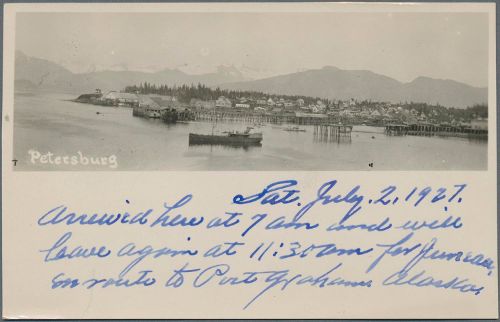 Petersburg
Sat. July. 2, 1927.
Arrived here at 7 am and will
leave again at 11:30 am for Juneau,
enroute to Port Grahams Alaska,